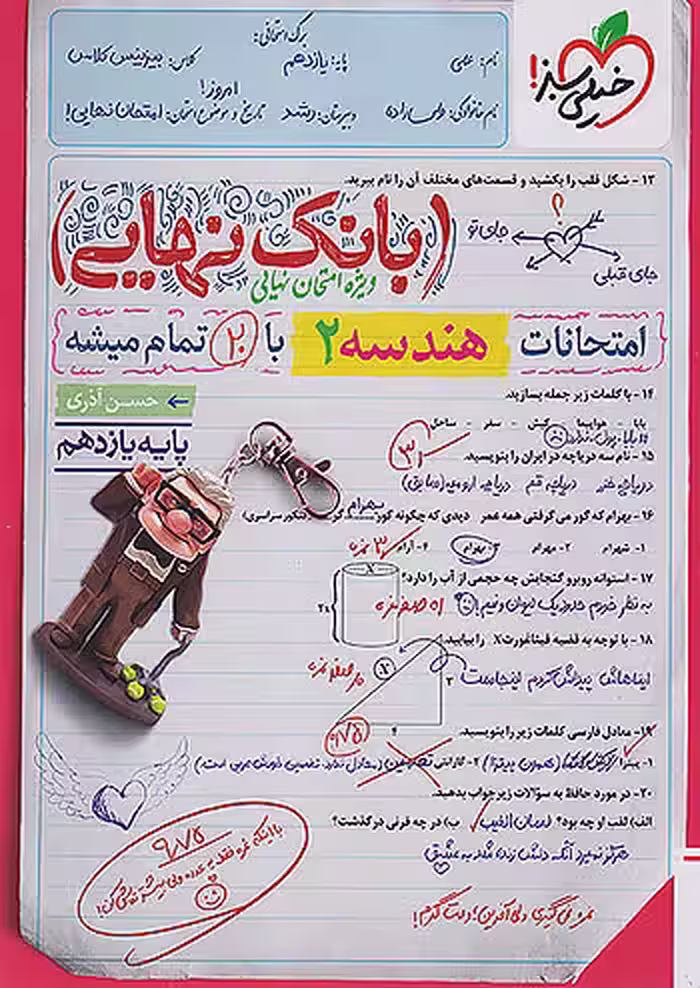 خیلی سبز!
برگ امتحانی:
نام: علی پایه: یازدهم کلاس: بیزینس کلاس
نام خانوادگی: دبیرستان: رشد تاریخ و موضوع امتحان: امروز! امتحان نهایی!
۱۳ - شکل قلب را بکشید و قسمت‌های مختلف آن را نام ببرید.
؟
جای تو
جای قبلی
(بانک نهایی)
ویژه امتحان نهایی
امتحانات هندسه ۲ با ۲۰ تمام میشه
۱۴ - با کلمات زیر جمله بسازید.
← حسن آذری
بابا - هواپیما - کیش - سفر - ساحل
بابا پول نداره
پایه یازدهم
۱۵ - نام سه دریاچه در ایران را بنویسید.
دریاچه خزر دریاچه قم دریاچه ارومیه (سابق)
۱۶ - بهرام که گور می‌گرفتی همه عمر دیدی که چگونه گور بهرام گرفت
۱- شهرام ۲- مهرام ۳- بهرام ۴- آرام
۱۷ - استوانه روبرو گنجایش چه حجمی از آب را دارد؟
به نظر خودم حدود یک لیوان و نیم!
X
۱۸ - با توجه به قضیه فیثاغورث X را بیابید.
ایناهاش پیداش کردم اینجاست
X
۳
۴
۱۹ - معادل فارسی کلمات زیر را بنویسید.
۱- پیتزا (همون پیتزا) ۲- گارانتی تضمین (معادل نداره. تضمین خودش عربی است)
۲۰ - در مورد حافظ به سؤالات زیر جواب بدهید.
الف) لقب او چه بود؟ لسان الغیب ب) در چه قرنی درگذشت؟
هرگز نمیرد آنکه دلش زنده شد به عشق
۹/۷۵
نمره نمی‌گیری ولی آفرین! دمت گرم!